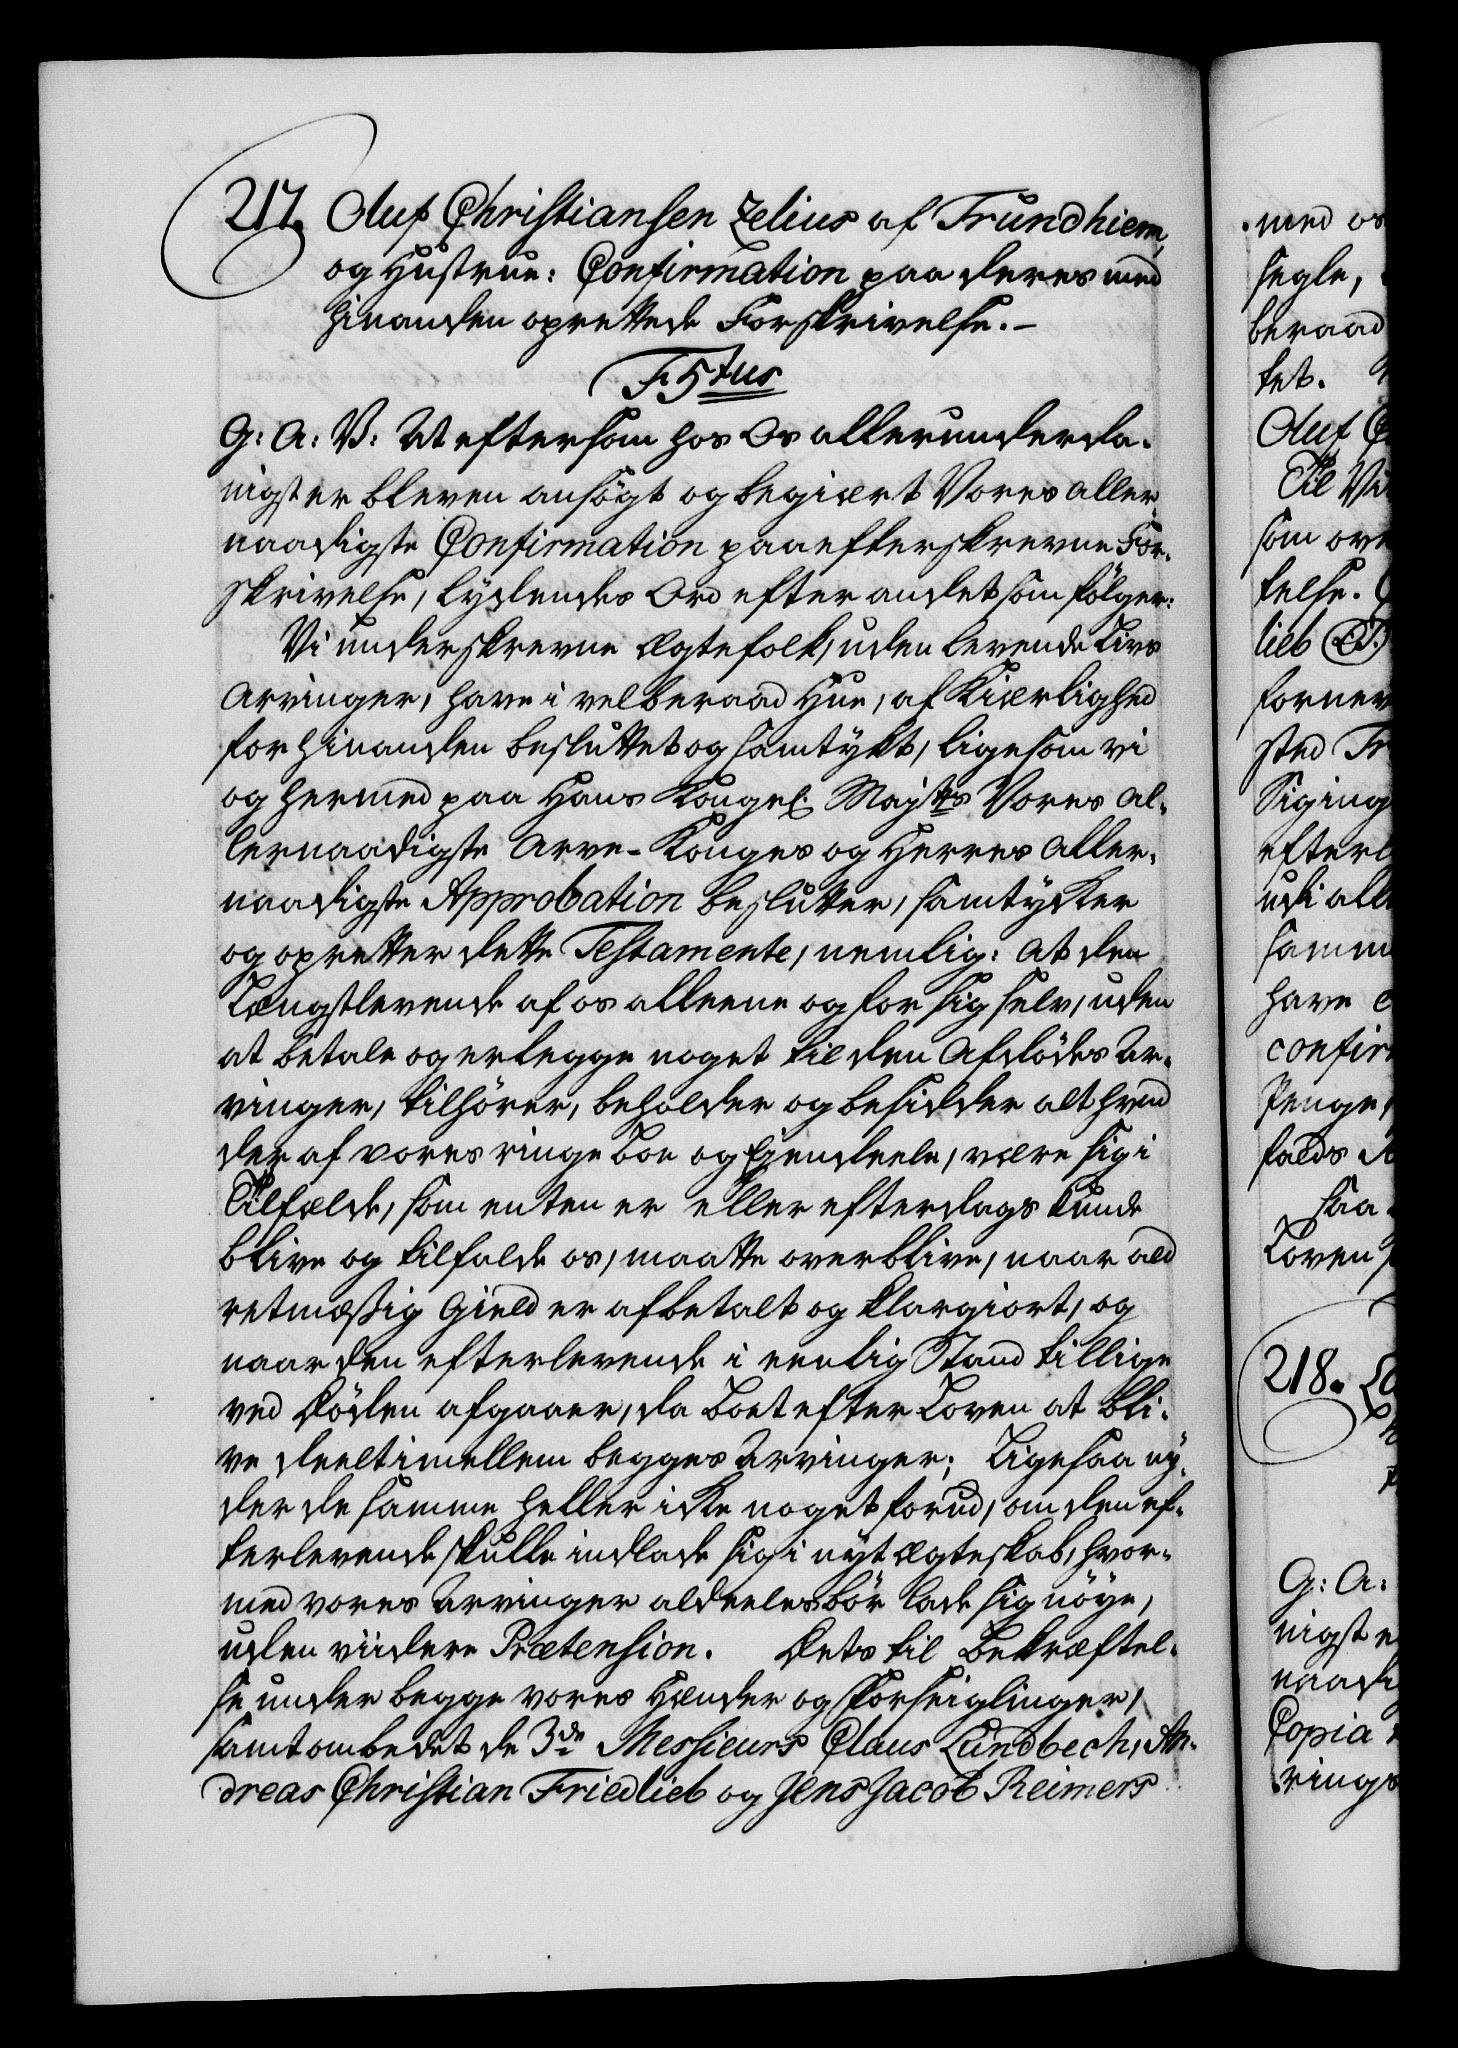 217. Oluf Christiansen Zelius af Trundhiem,
og Hustrue: Confirmation paa deres med
hinanden oprettede Forskrivelse.-
F5tus
G: A: V: At eftersom hos Os allerunderda-
nigst er bleven ansögt og begiært Vores aller-
naadigste Confirmation paa efterskrevne For-
skrivelse, lydendes Ord efter andet som fölger:
Vi underskrevne ægtefolk, uden levende Livs
Arvinger, have i velberaad Hue, af Kiærlighed
for hinanden besluttet og samtykt, ligesom vi
og hermed paa Hans Kongel. Majts Vores Al-
lernaadigste Arve-Konges og Herres Aller-
naadigste Approbation beslutter, samtycker
og opretter dette Testamente, nemlig: At den
Længstlevende af os alleene og for sig selv, uden
at betale og erlegge noget til den Afdödes Ar-
vinger, tilhörer, beholder og besidder alt hvad
der af vores ringe Boe og Ejendeele, være sig i
Tilfælde, som enten er eller efterdags kunde
blive og tilfalde os, maatte overblive, naar ald
retmæssig Gield er afbetalt og klargiort, og
naar den efterlevende i eenlig Stand tillige
ved Döden afgaaer, da Boet efter Loven at bli-
ve deelt imellem begges Arvinger; Ligesaa ny-
der de samme heller icke noget forud, om den ef-
terlevende skulle indlade sig i nyt ægteskab, hvor-
med vores Arvinger aldeeles bör lade sig nöye,
uden viidere Prætension. Dets til Bekræftel-
se under begge vores Hænder og Forseiglinger,
samt ombedet de 3de Messieurs Claus Lundbech, An-
dreas Christian Friedlieb og Jens Jacob Reimers
med os
segle,
beraad
tet.
Oluf
Til Vi
som ove
telse.
lieb (L.S.)
fornev
sted Tr
Siging
efterl
udi all
samm
have
confir
Penge,
falds
saa
Loven
218.
G: A:
nigst e
naadi
Copia
rings